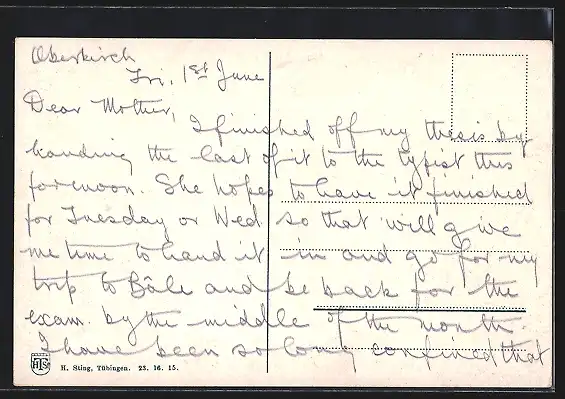 Oberkirch
Fri, 1st June
Dear Mother,
I finished off my thesis by
handing the last of it to the typist this
forenoon. She hopes to have it finished
for Tuesday or Wed. so that will give
me time to hand it in and go for my
trip to Bâle and be back for the
exam. by the middle of the month.
I have been so long confined that
HTS
H. Sting, Tübingen. 23. 16. 15.